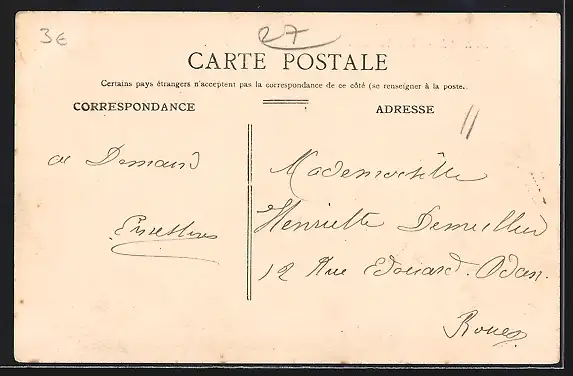 3€
27
CARTE POSTALE
Certains pays étrangers n'acceptent pas la correspondance de ce côté (se renseigner à la poste.
CORRESPONDANCE
ADRESSE
Mademoiselle
Henriette
12 Rue Edouard Adam
Rouen